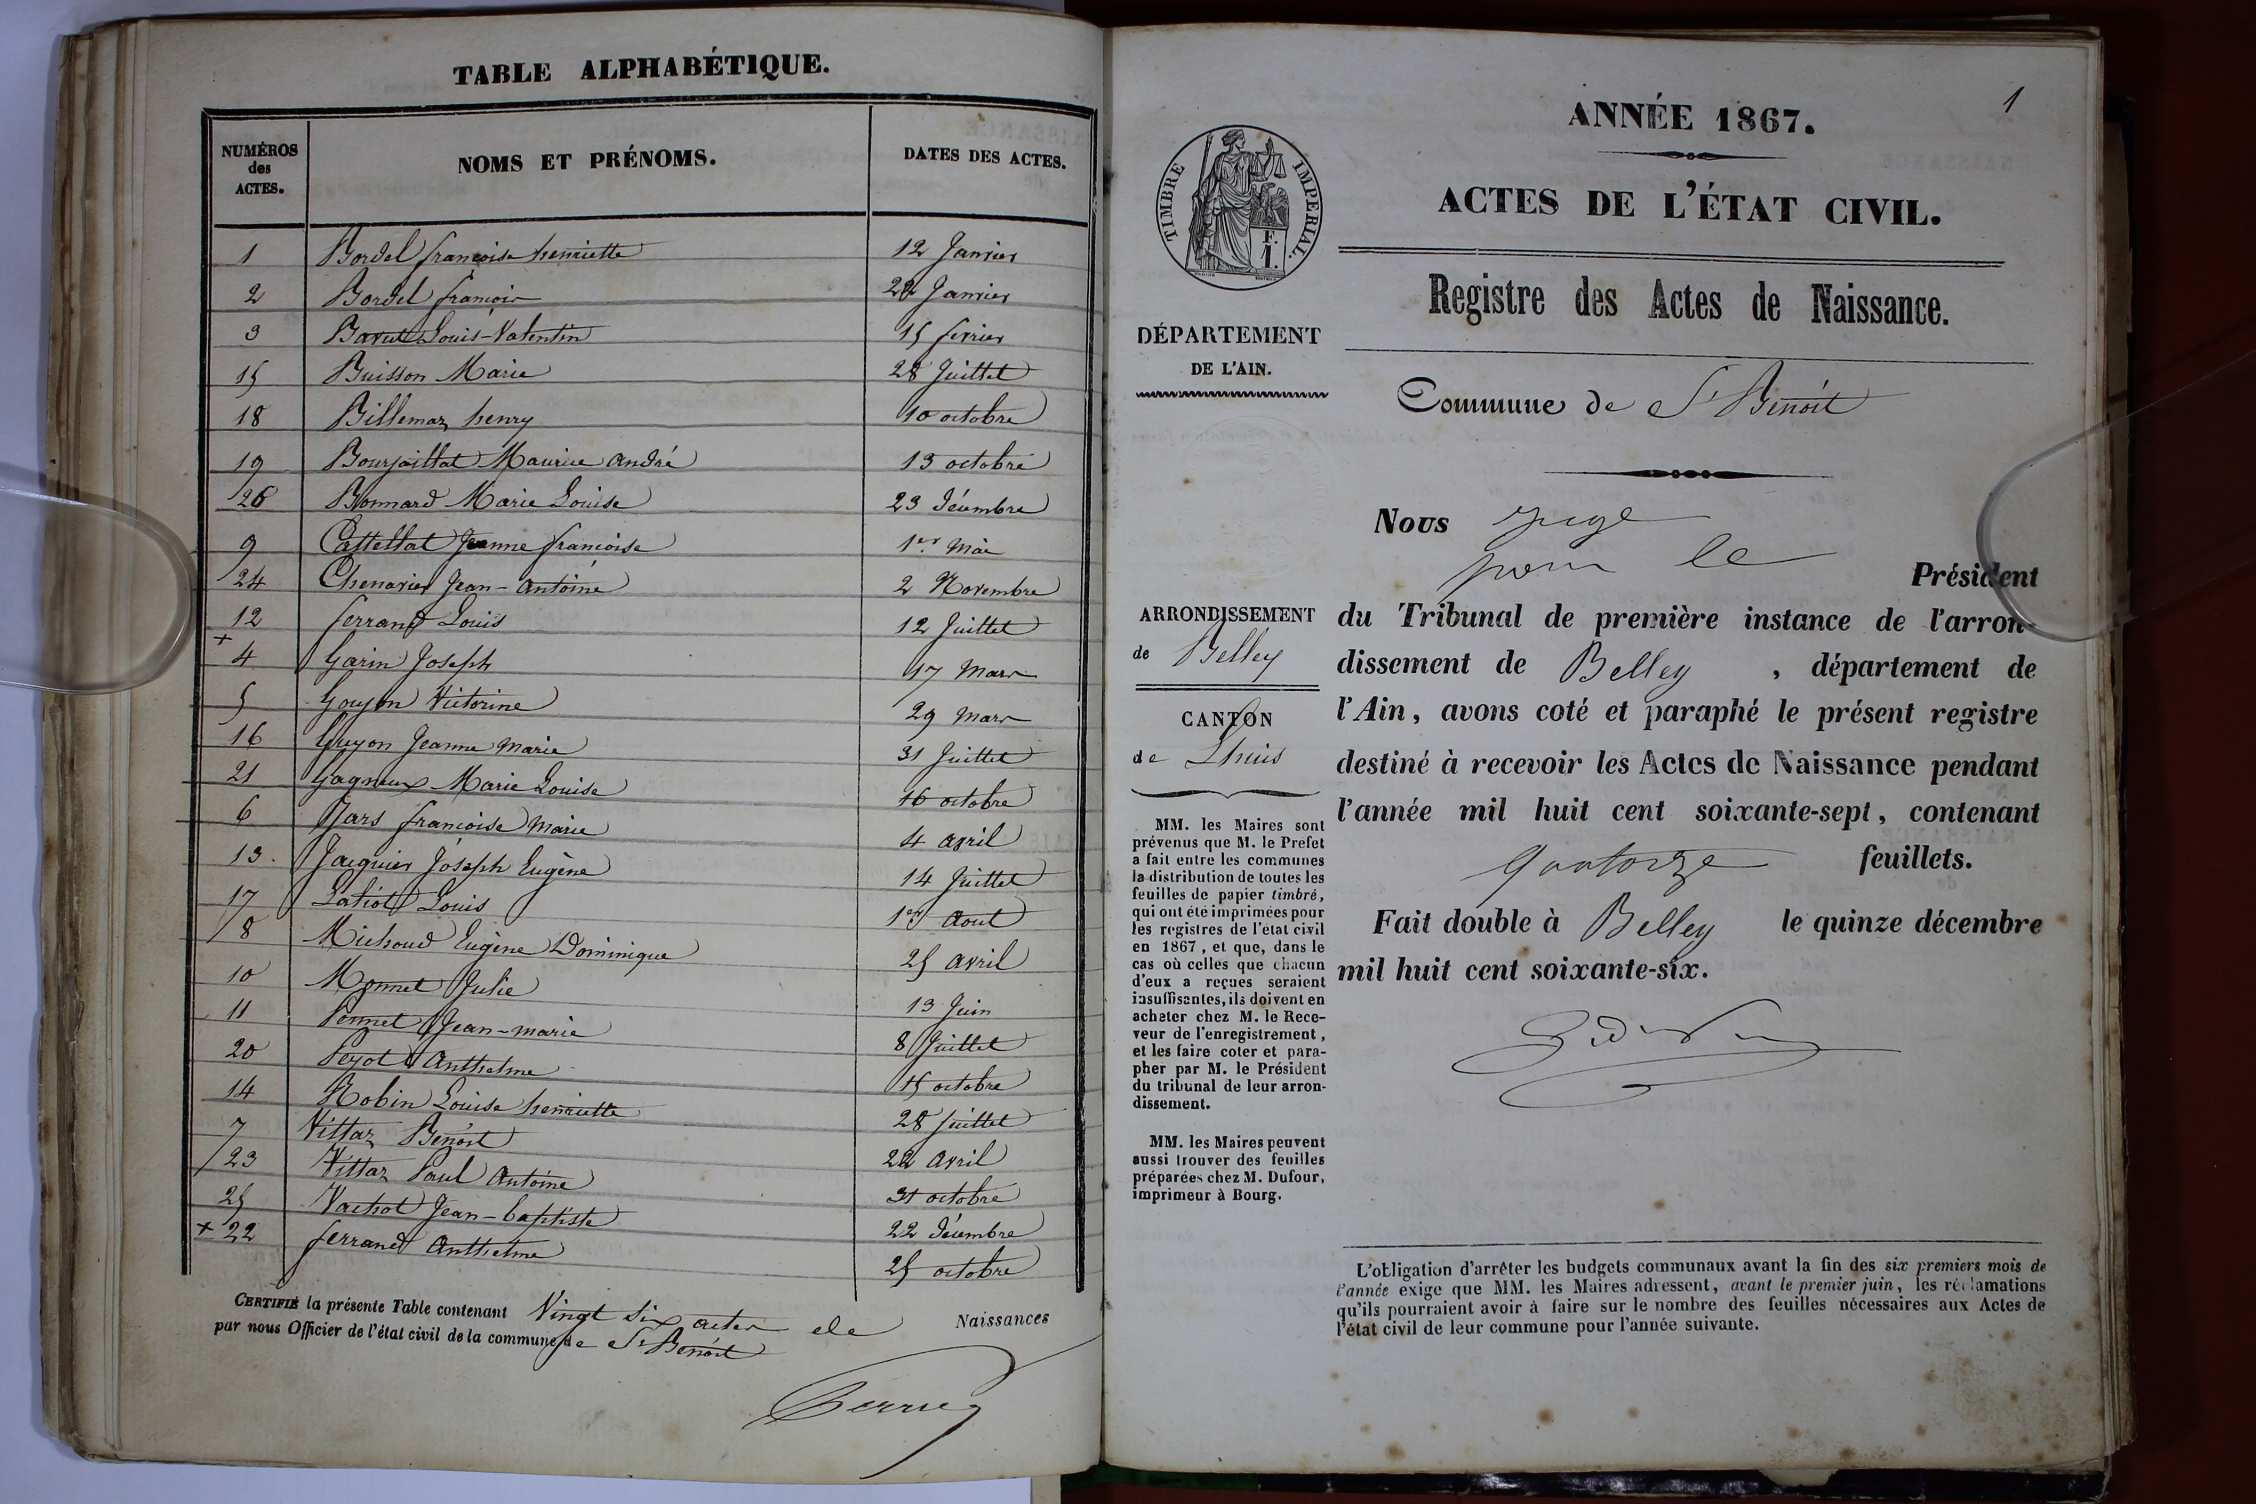 TABLE ALPHABÉTIQUE.
NUMÉROS des ACTES. NOMS ET PRÉNOMS. DATES DES ACTES.
1 Bordel françoise henriette 12 Janvier
2 Bordel françois 22 Janvier
3 Barut Louis-Valentin 15 fevrier
15 Buisson Marie 28 Juillet
18 Billemaz henry 10 octobre
19 Bourjaillat Maurice andré 13 octobre
26 Bonnard Marie Louise 23 décembre
9 Castellat Jeanne françoise 1er Mai
24 Chenavier Jean-antoine 2 Novembre
12 ferrand Louis 12 Juillet
+ 4 Garin Joseph 17 Mars
5 Goujon Victorine 29 Mars
16 Guyon Jeanne Marie 31 Juillet
21 Gagneux Marie Louise 16 octobre
6 Jars françoise Marie 4 avril
13. Jacquier Joseph Eugène 14 Juillet
17 Latiot Louis 1er aout
8 Michoud Eugène Dominique 25 avril
10 Monnet Julie 13 Juin
11 Ponnet Jean-marie 8 Juillet
20 Peyot Anthelme 15 octobre
14 Robin Louise henriette 28 Juillet
7 Vittaz Benoit 22 avril
23 Vittaz Paul Antoine 31 octobre
25 Vachot Jean-baptiste 22 décembre
+ 22 ferrand Anthelme 25 octobre
CERTIFIÉ la présente Table contenant Vingt six actes de Naissances
par nous Officier de l'état civil de la commune de St Benoit
1
ANNÉE 1867.
ACTES DE L'ÉTAT CIVIL.
TIMBRE IMPERIAL.
F.
1.
Registre des Actes de Naissance.
DÉPARTEMENT
DE L'AIN.
Commune de St Benoit
Nous juge
pour le Président
ARRONDISSEMENT
de Belley
CANTON
de Lhuis
du Tribunal de première instance de l'arron-
dissement de Belley , département de
l'Ain, avons coté et paraphé le présent registre
destiné à recevoir les Actes de Naissance pendant
l'année mil huit cent soixante-sept, contenant
quatorze feuillets.
Fait double à Belley le quinze décembre
mil huit cent soixante-six.
MM. les Maires sont
prévenus que M. le Prefet
a fait entre les communes
la distribution de toutes les
feuilles de papier timbré,
qui ont été imprimées pour
les registres de l'état civil
en 1867, et que, dans le
cas où celles que chacun
d'eux a reçues seraient
insuffisantes, ils doivent en
acheter chez M. le Rece-
veur de l'enregistrement,
et les faire coter et para-
pher par M. le Président
du tribunal de leur arron-
dissement.
MM. les Maires peuvent
aussi trouver des feuilles
préparées chez M. Dufour,
imprimeur à Bourg.
L'obligation d'arrêter les budgets communaux avant la fin des six premiers mois de
l'année exige que MM. les Maires adressent, avant le premier juin, les réclamations
qu'ils pourraient avoir à faire sur le nombre des feuilles nécessaires aux Actes de
l'état civil de leur commune pour l'année suivante.